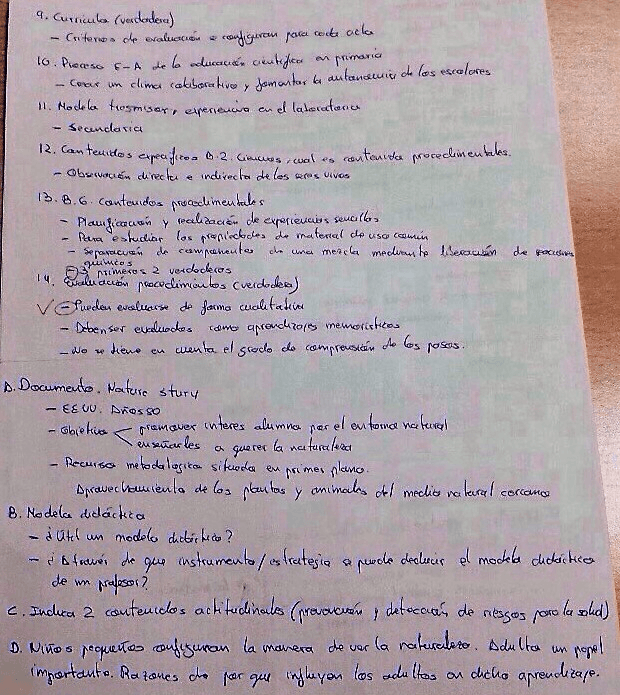 9. Curricula (verdadera)
- Criterios de evaluación se configuran para cada acta
10. Proceso E-A de la educación científica en primaria
- Crear un clima colaborativo y fomentar la autonomía de los escolares
11. Modelo trasmisor, experiencia en el laboratorio
- Secundaria
12. Contenidos específicos B.2. Ciencias, cual es contenido procedimentales.
- Observación directa e indirecta de los seres vivos
13. B.6. contenidos procedimentales
- Planificación y realización de experiencias sencillas
- Para estudiar las propiedades de material de uso común
- Separación de componentes de una mezcla mediante liberación de
químicos
3 primeros 2 verdaderos
14. Evaluación procedimientos (verdadera)
V - Pueden evaluarse de forma cualitativa
- Deben ser evaluados como aprendizajes memorísticos
- No se tiene en cuenta el grado de comprensión de los pasos.
A. Documento. Nature story
- EEUU. Años 50
- Objetivo < promover interes alumno por el entorno natural
enseñarles a querer la naturaleza
- Recurso metodologico situado en primer plano.
Aprovechamiento de las plantas y animales del medio natural cercano
B. Modelo didáctico
- ¿Útil un modelo didáctico?
- ¿A través de que instrumento/estrategia se puede deducir el modelo didáctico
de un profesor?
C. Indica 2 contenidos actitudinales (prevención y detección de riesgos para la salud)
D. Niños pequeños configuran la manera de ver la naturaleza. Adulto un papel
importante. Razones de por que influyen los adultos en dicho aprendizaje.